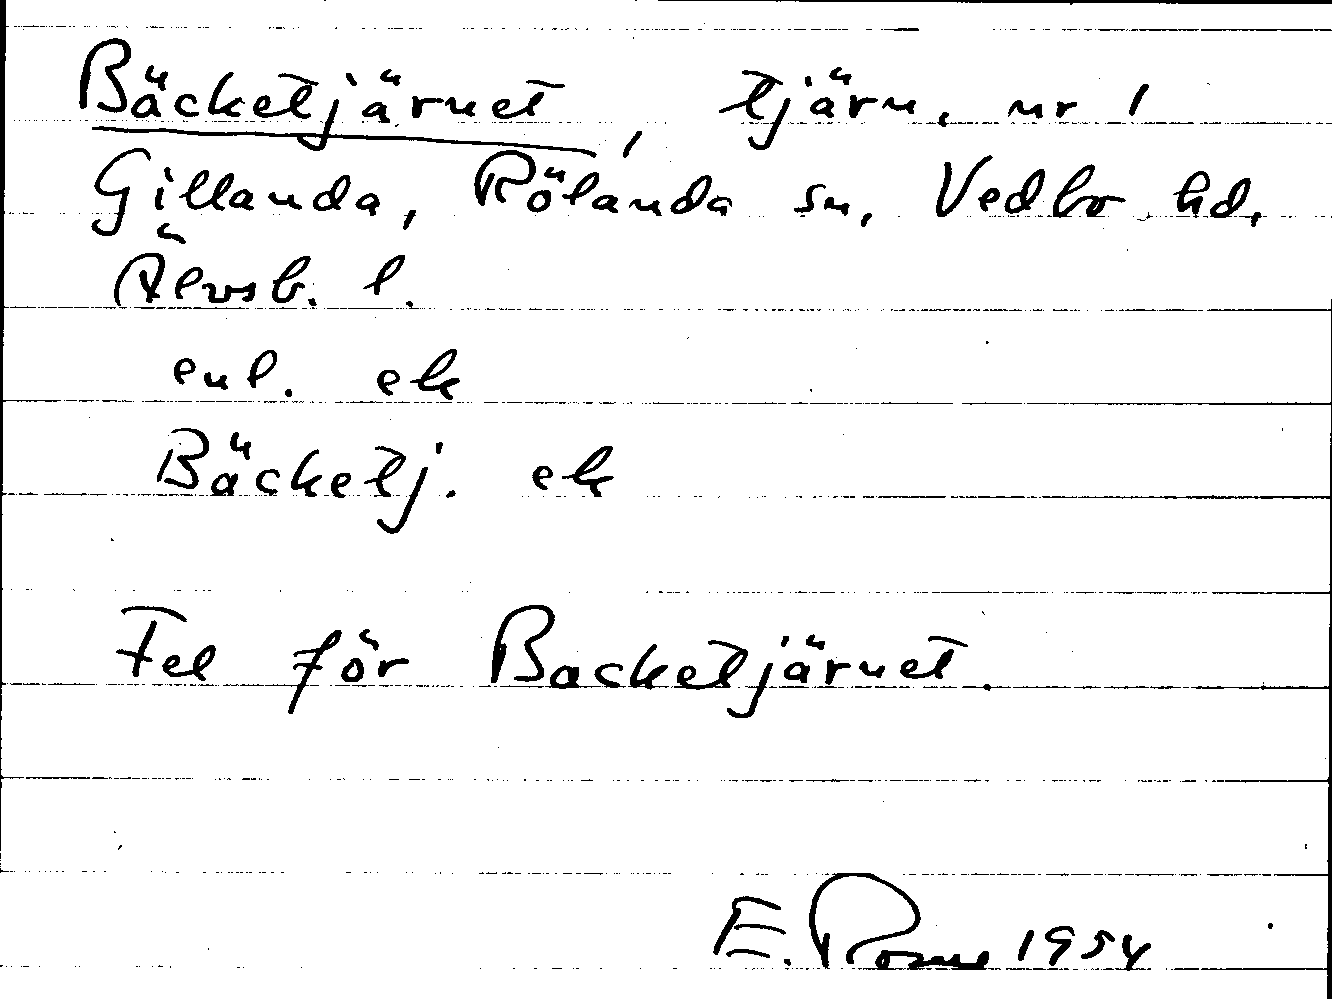 Bäcketjärnet, tjärn, nr 1
Gillanda, Rölanda sn, Vedbo hd,
Älvsb. l.
enl. ek
Bäcketj. ek
Fel för Backetjärnet.
E. Rosne 1954